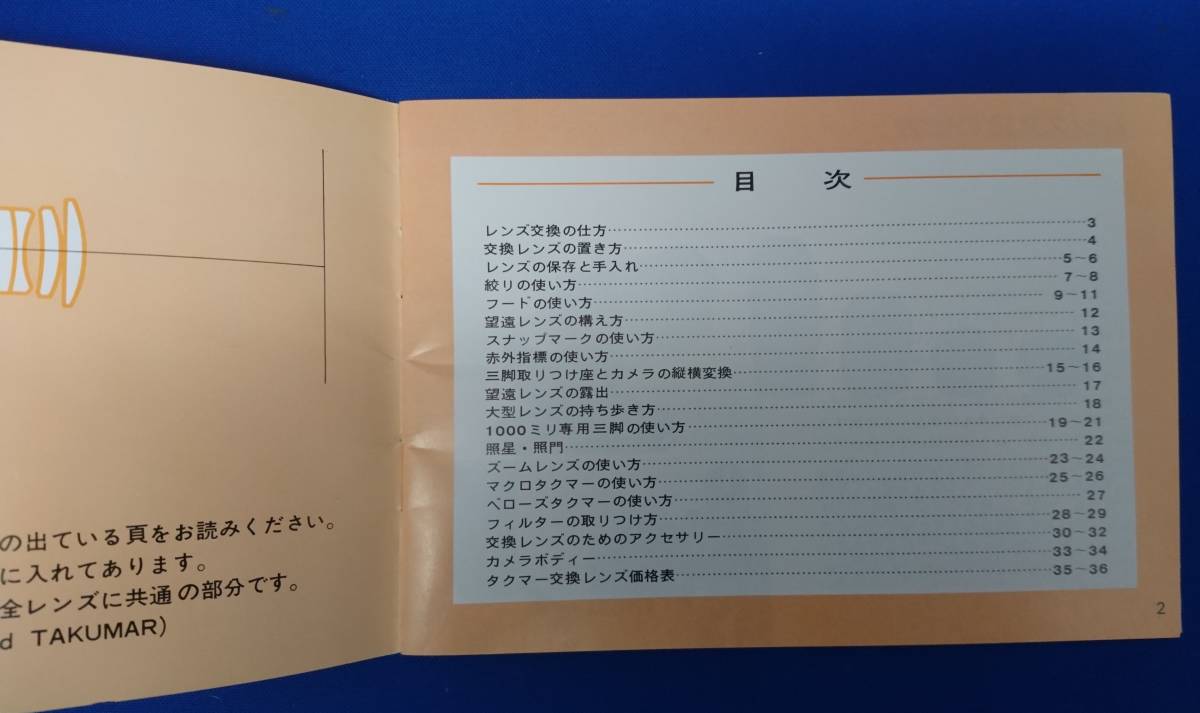 の出ている頁をお読みください。
に入れてあります。
全レンズに共通の部分です。
d TAKUMAR)
目 次
レンズ交換の仕方……3
交換レンズの置き方……4
レンズの保存と手入れ……5~6
絞りの使い方……7~8
フードの使い方……9~11
望遠レンズの構え方……12
スナップマークの使い方……13
赤外指標の使い方……14
三脚取りつけ座とカメラの縦横変換……15~16
望遠レンズの露出……17
大型レンズの持ち歩き方……18
1000ミリ専用三脚の使い方……19~21
照星・照門……22
ズームレンズの使い方……23~24
マクロタクマーの使い方……25~26
ベローズタクマーの使い方……27
フィルターの取りつけ方……28~29
交換レンズのためのアクセサリー……30~32
カメラボディー……33~34
タクマー交換レンズ価格表……35~36
2